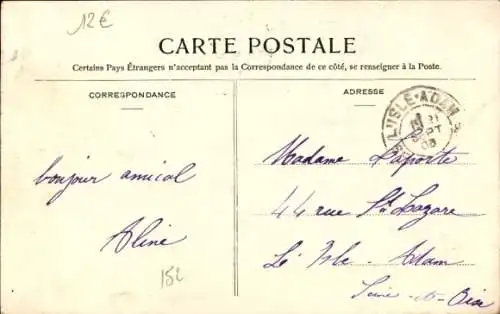 12€
CARTE POSTALE
Certains Pays Étrangers n'acceptant pas la Correspondance de ce côté, se renseigner à la Poste.
CORRESPONDANCE
ADRESSE
L'ISLE-ADAM
21
SEPT
08
bonjour amical
Aline
152
Madame Laporte
44 rue St. Lazare
L'Isle-Adam
Seine-et-Oise